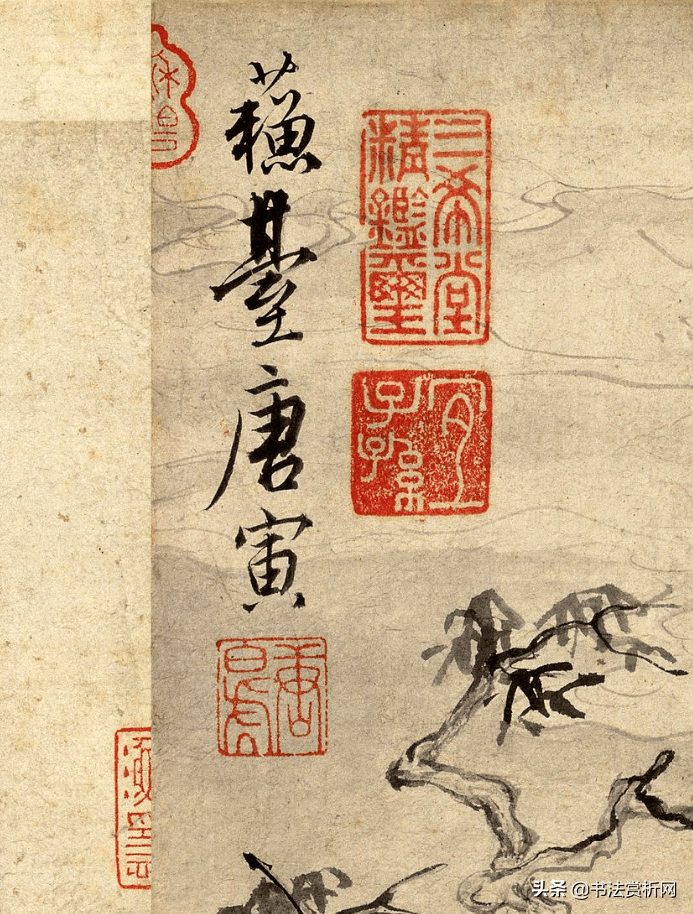 蘓臺唐寅
三希堂
精鑑璽
宜
子孫
唐
白虎
头条 @书法赏析网